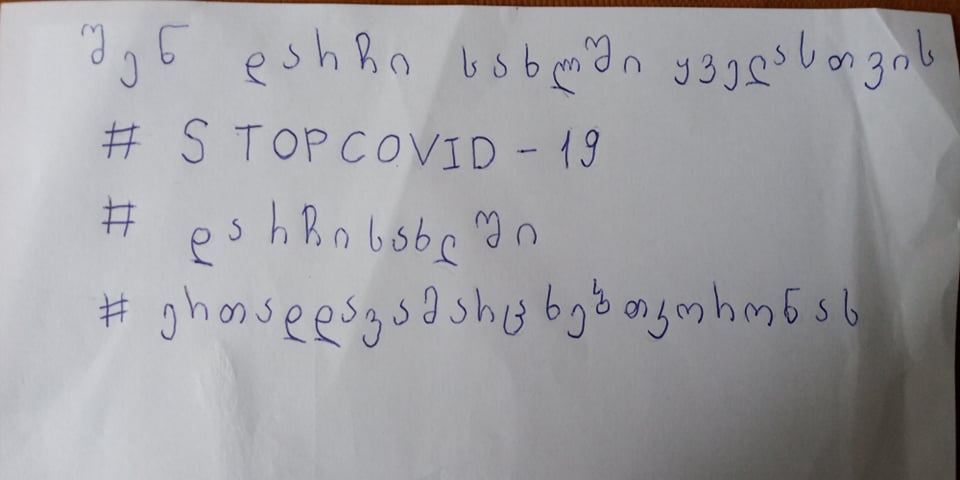 შენ დარჩი სახლში ყველასთვის
# STOPCOVID-19
# დარჩისახლში
# ერთადდავამარცხებთკორონას